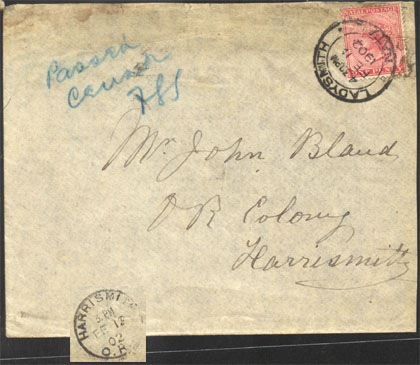 Passed
Censor
FSS
LADYSMITH
1902
Mr. John Bland
O R Colony
Harrismith
HARRISMITH